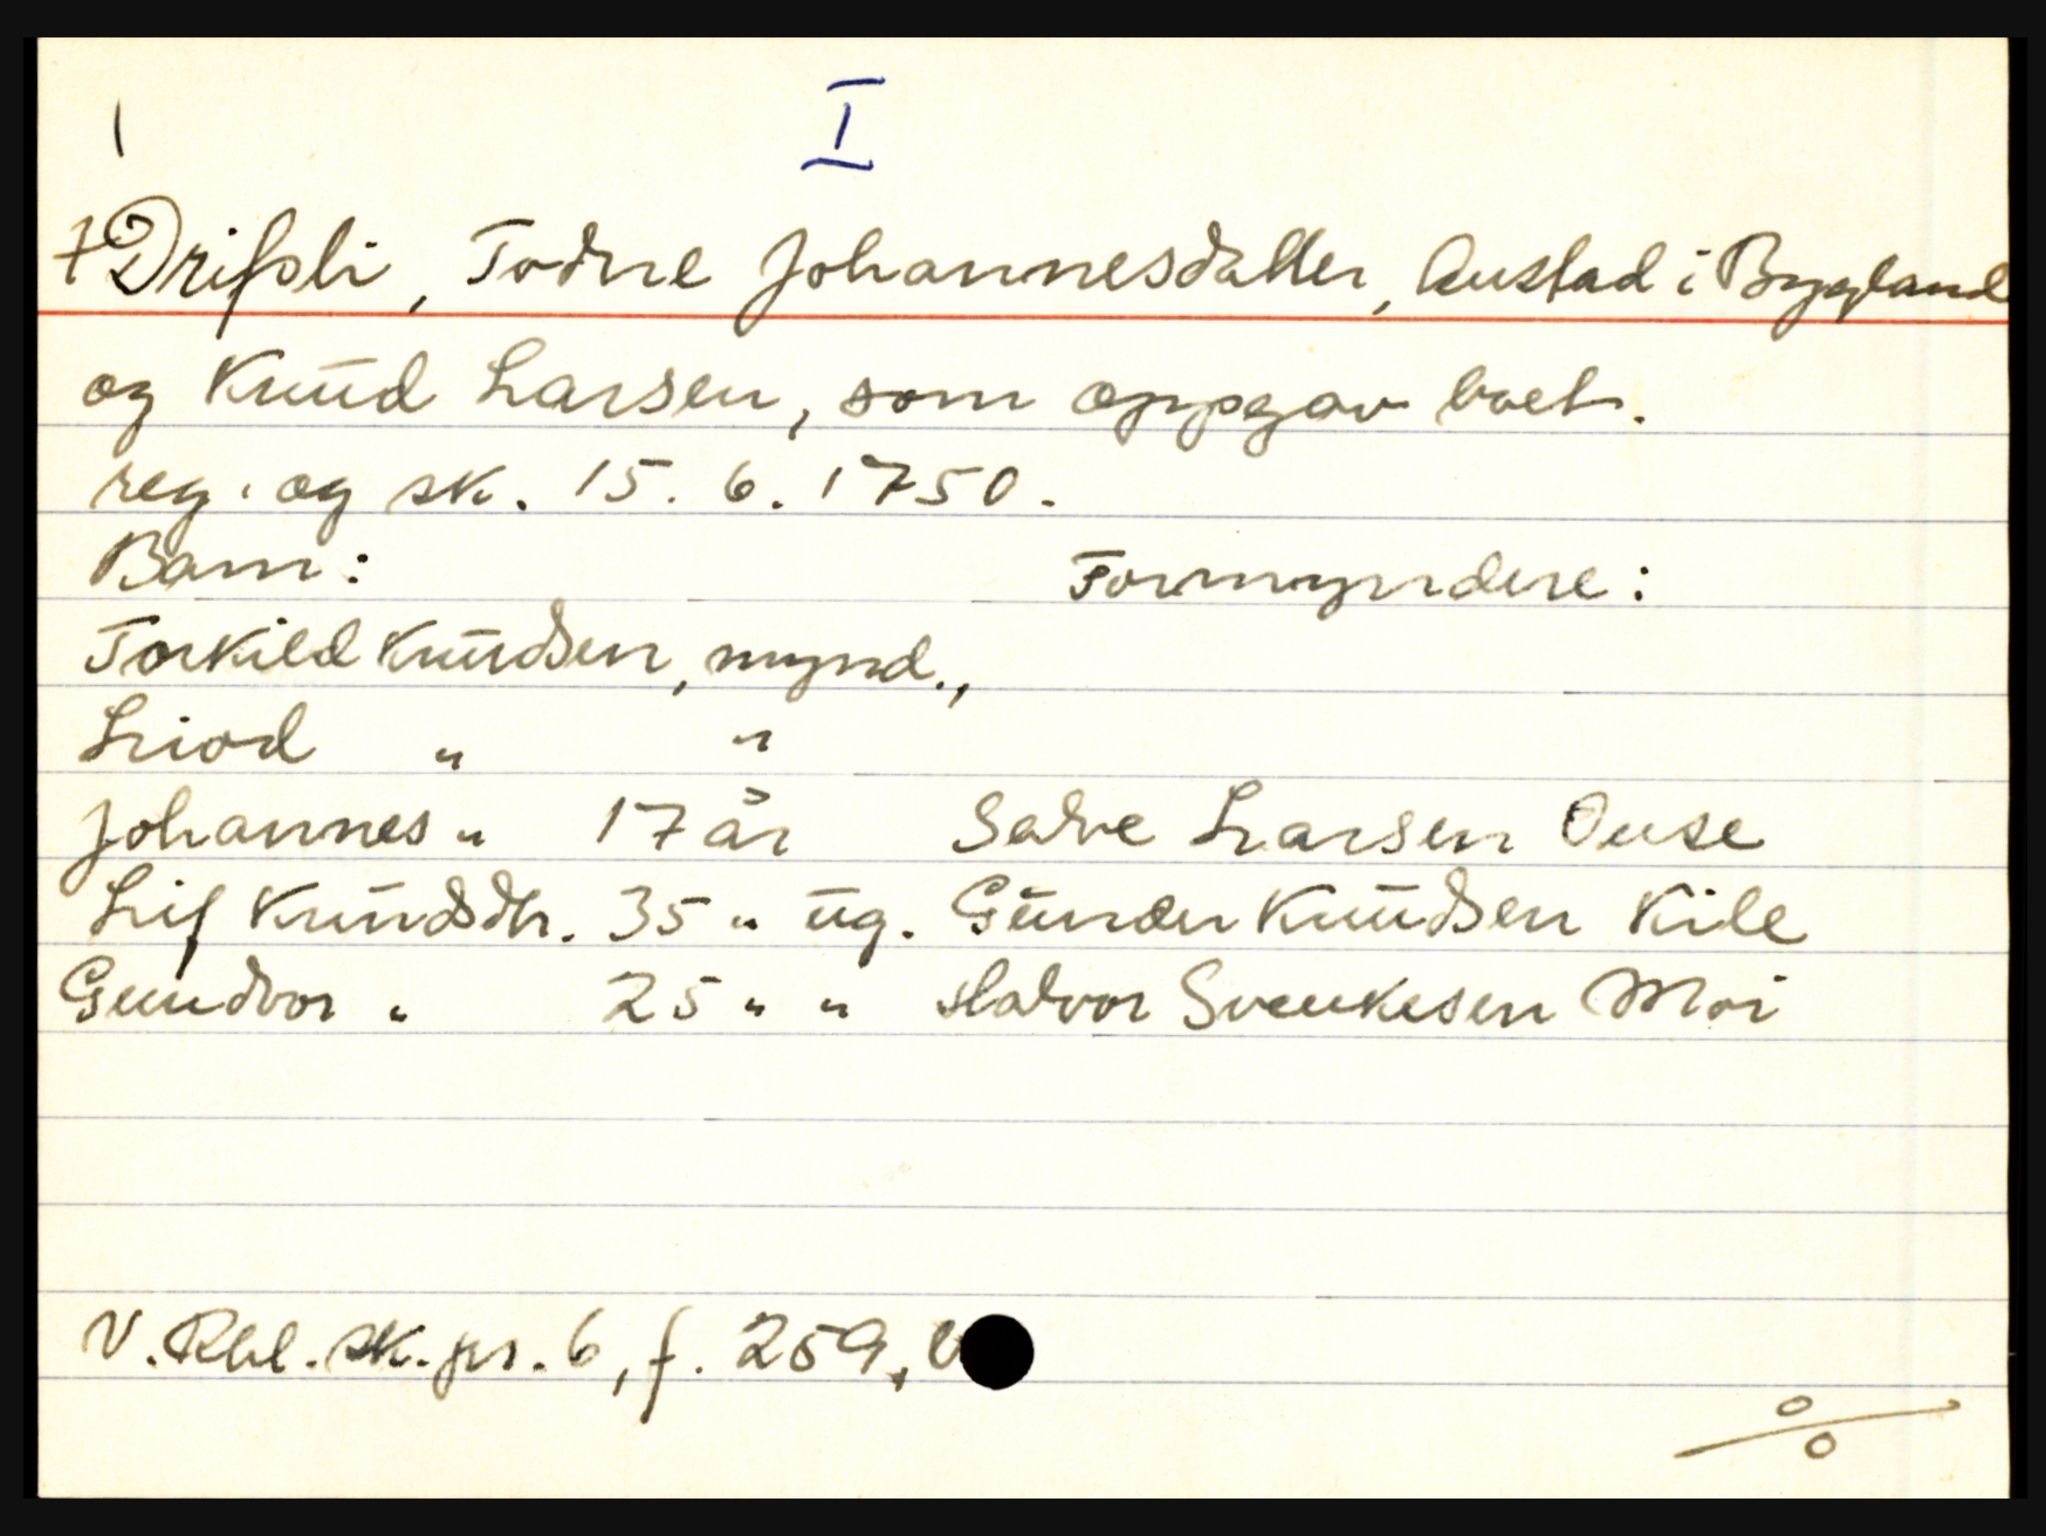 I
+Drifsli, Todne Johannesdatter, Austad i Bygland
og Knud Larsen, som oppgav boet.
reg. og sk. 15. 6. 1750.
Barn: Formyndere:
Torkild Knudsen, mynd.,
Liod " "
Johannes " 17 år Salve Larsen Ouse
Lif Knudsdtr. 35 " ug. Gunder Knudsen Kile
Gundvor " 25 " " Halvor Svenkesen Moi
V. Rbl. sk. pr. 6, f. 259,
%